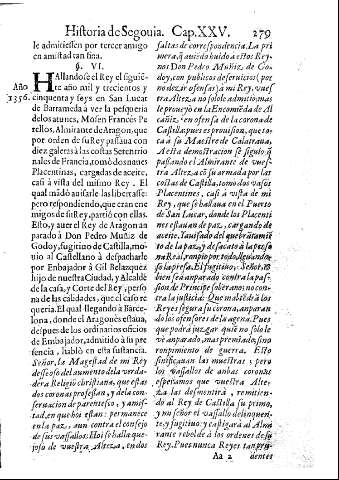 Historia de Segouia. Cap. XXV. 279
le admitiessen por tercer amigo
en amistad tan fina.
§. VI.
Año
1356.
HAllandose el Rey el siguiẽ-
te año mil y trecientos y
cinquenta y seys en San Lucar
de Barrameda à ver la pesqueria
de los atunes, Mosen Francès Pe
rellos, Almirante de Aragon, que
por orden de su Rey passaua con
diez galeras à las costas
de Francia, tomò dos naues
Placentinas, cargadas de aceite,
casi à vista del mismo Rey. El
qual mãdò auisarle las libertasse:
pero respondiendo, que eran ene
migos de su Rey, partiò con ellas.
Esto, y auer el Rey de Aragon am
parado à Don Pedro Muñiz de
Godoy, fugitiuo de Castilla, mo-
uio al Castellano à despacharle
por Embaxador à Gil Belazquez
hijo de nuestra Ciudad, y Alcalde
de la casa, y Corte del Rey, perso
na de las calidades, que el caso re
queria. El qual llegando à Barce-
lona, donde el Aragonès estaua,
despues de los ordinarios oficios
de Embaxador, admitido à su pre
sencia, hablò en esta sustancia.
Señor, la Magestad de mi Rey
desseoso del aumento de la verda-
dera Religiõ christiana, que estas
dos coronas professan, y de la con-
seruacion de parentesco, y amis-
tad, en que hoi estan: permanece
en la paz, aun contra el consejo
de sus vassallos: Hoi se halla que-
joso de vuestra Alteza, en dos
faltas de correspondencia. La pri
mera, q̃ auiẽdo huido à estos Rey
nos Don Pedro Muñiz, de Go-
doy, con publicos deseruicios (por
no dezir ofensas) à mi Rey, vues
tra Alteza no solo le admitiò: mas
le proueyò en la Encomiẽda de Al
cañiz, en ofensa de la corona de
Castilla, pues es prouision, que to-
ca à su Maestre de Calatraua.
A esta demostracion se siguiò, q̃
passando el Almirante de vues-
tra Alteza, cõ su armada por las
costas de Castilla, tomò dos vasos
Placentines, casi à vista de mi
Rey, que se hallaua en el Puerto
de San Lucar, donde los Placenti
nes estauan de paz, cargando de
aceite. Auisado del quebrãtamiẽ
to de la paz, y desacato à la perso
na Real, rompio por todo, lleuãdo-
se la presa. El fugitiuo, Señor,
bien serà amparado contra la pas-
sion de Principe soberano; no con-
tra la justicia: Que mal dà à los
Reyes segura su corona, amparan
do los ofensores de la agena. Pues
que podrà juzgar quiẽ no solo le
vè amparado, mas premiado, sino
rompimiento de guerra. Esto
sinifican las muestras; pero
los vassallos de anbas coronas
esperamos que vuestra Alte-
za las desmentirà, remitien-
do al Rey de Castilla su primo,
y mi señor el vassallo delinquen-
te, y fugitiuo: y castigarà al Almi
rante rebelde à los ordenes de su
Rey. Pues nunca Reyes tan pru-
Aa 2 dentes